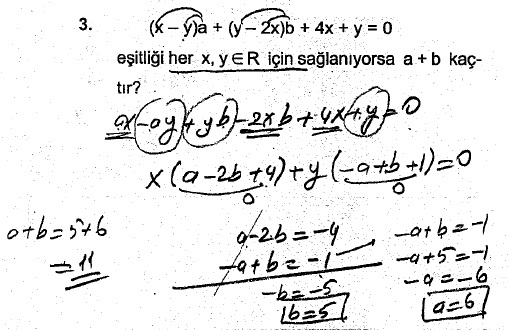 3. (x – y)a + (y – 2x)b + 4x + y = 0
eşitliği her x, y ∈ R için sağlanıyorsa a + b kaç-
tır?
ax - ay + yb - 2xb + 4x + y = 0
x(a - 2b + 4) + y(-a + b + 1) = 0
0 0
a - 2b = -4
-a + b = -1
-b = -5
b = 5
-a + b = -1
-a + 5 = -1
-a = -6
a = 6
a + b = 5 + 6
= 11